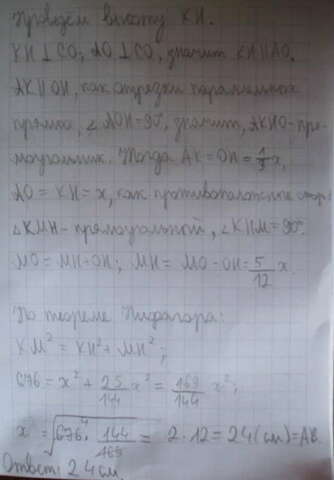 Проведём высоту KH.
KH ⊥ CO; AO ⊥ CO, значит KH || AO.
AK || OH, как отрезки параллельных
прямых, ∠ AOH = 90°, значит, AKHO - пря-
моугольник. Тогда AK = OH = 1/3 x,
AO = KH = x, как противоположные сторо
△KMH - прямоугольный, ∠KHM = 90°.
MO = MH - OH; MH = MO - OH = 5/12 x.
По теореме Пифагора:
KM² = KH² + MH²;
676 = x² + 25/144 x² = 169/144 x²;
x = √(676 · 144/169) = 2 · 12 = 24 (см) = AB.
Ответ: 24 см.